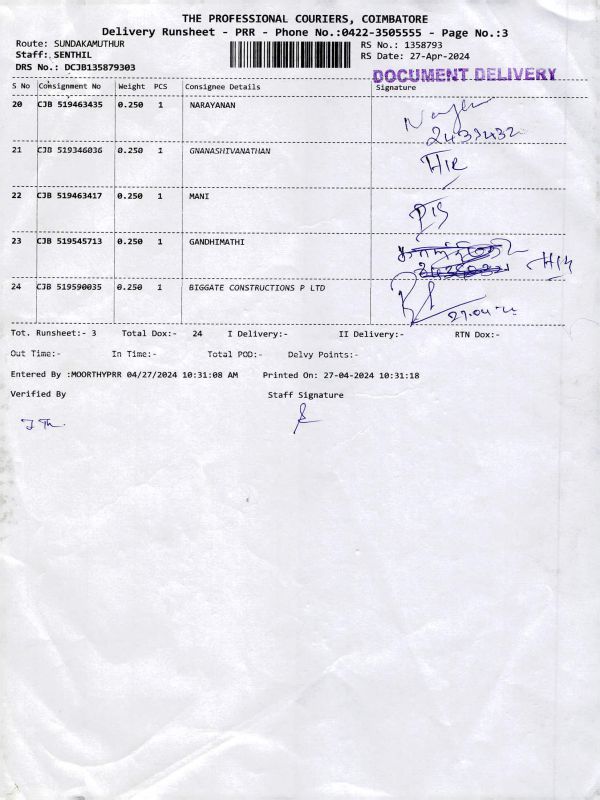 THE PROFESSIONAL COURIERS, COIMBATORE
Delivery Runsheet - PRR - Phone No.:0422-3505555 - Page No.:3
Route: SUNDAKAMUTHUR RS No.: 1358793
Staff: SENTHIL RS Date: 27-Apr-2024
DRS No.: DCJB135879303
DOCUMENT DELIVERY
S No Consignment No Weight PCS Consignee Details Signature
20 CJB 519463435 0.250 1 NARAYANAN
21 CJB 519346036 0.250 1 GNANASHIVANATHAN
22 CJB 519463417 0.250 1 MANI
23 CJB 519545713 0.250 1 GANDHIMATHI
24 CJB 519590035 0.250 1 BIGGATE CONSTRUCTIONS P LTD
Tot. Runsheet:- 3 Total Dox:- 24 I Delivery:- II Delivery:- RTN Dox:-
Out Time:- In Time:- Total POD:- Delvy Points:-
Entered By :MOORTHYPRR 04/27/2024 10:31:08 AM Printed On: 27-04-2024 10:31:18
Verified By Staff Signature